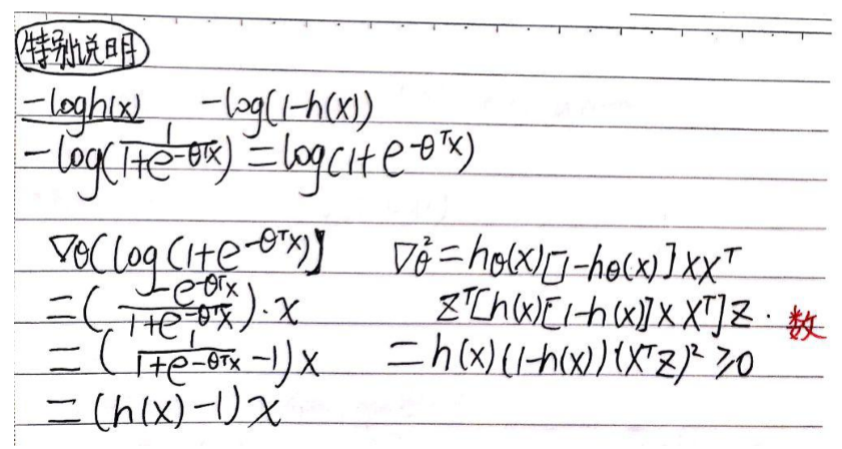 特别说明
-logh(x) -log(1-h(x))
-log(1/(1+e^(-θᵀx))) = log(1+e^(-θᵀx))
∇θ[log(1+e^(-θᵀx))]
= (-e^(-θᵀx)/(1+e^(-θᵀx)))·x
= (1/(1+e^(-θᵀx)) -1)x
= (h(x)-1)x
∇θ² = hθ(x)[1-hθ(x)]xxᵀ
zᵀ[h(x)[1-h(x)]xxᵀ]z · 数
= h(x)(1-h(x))(xᵀz)² ≥0